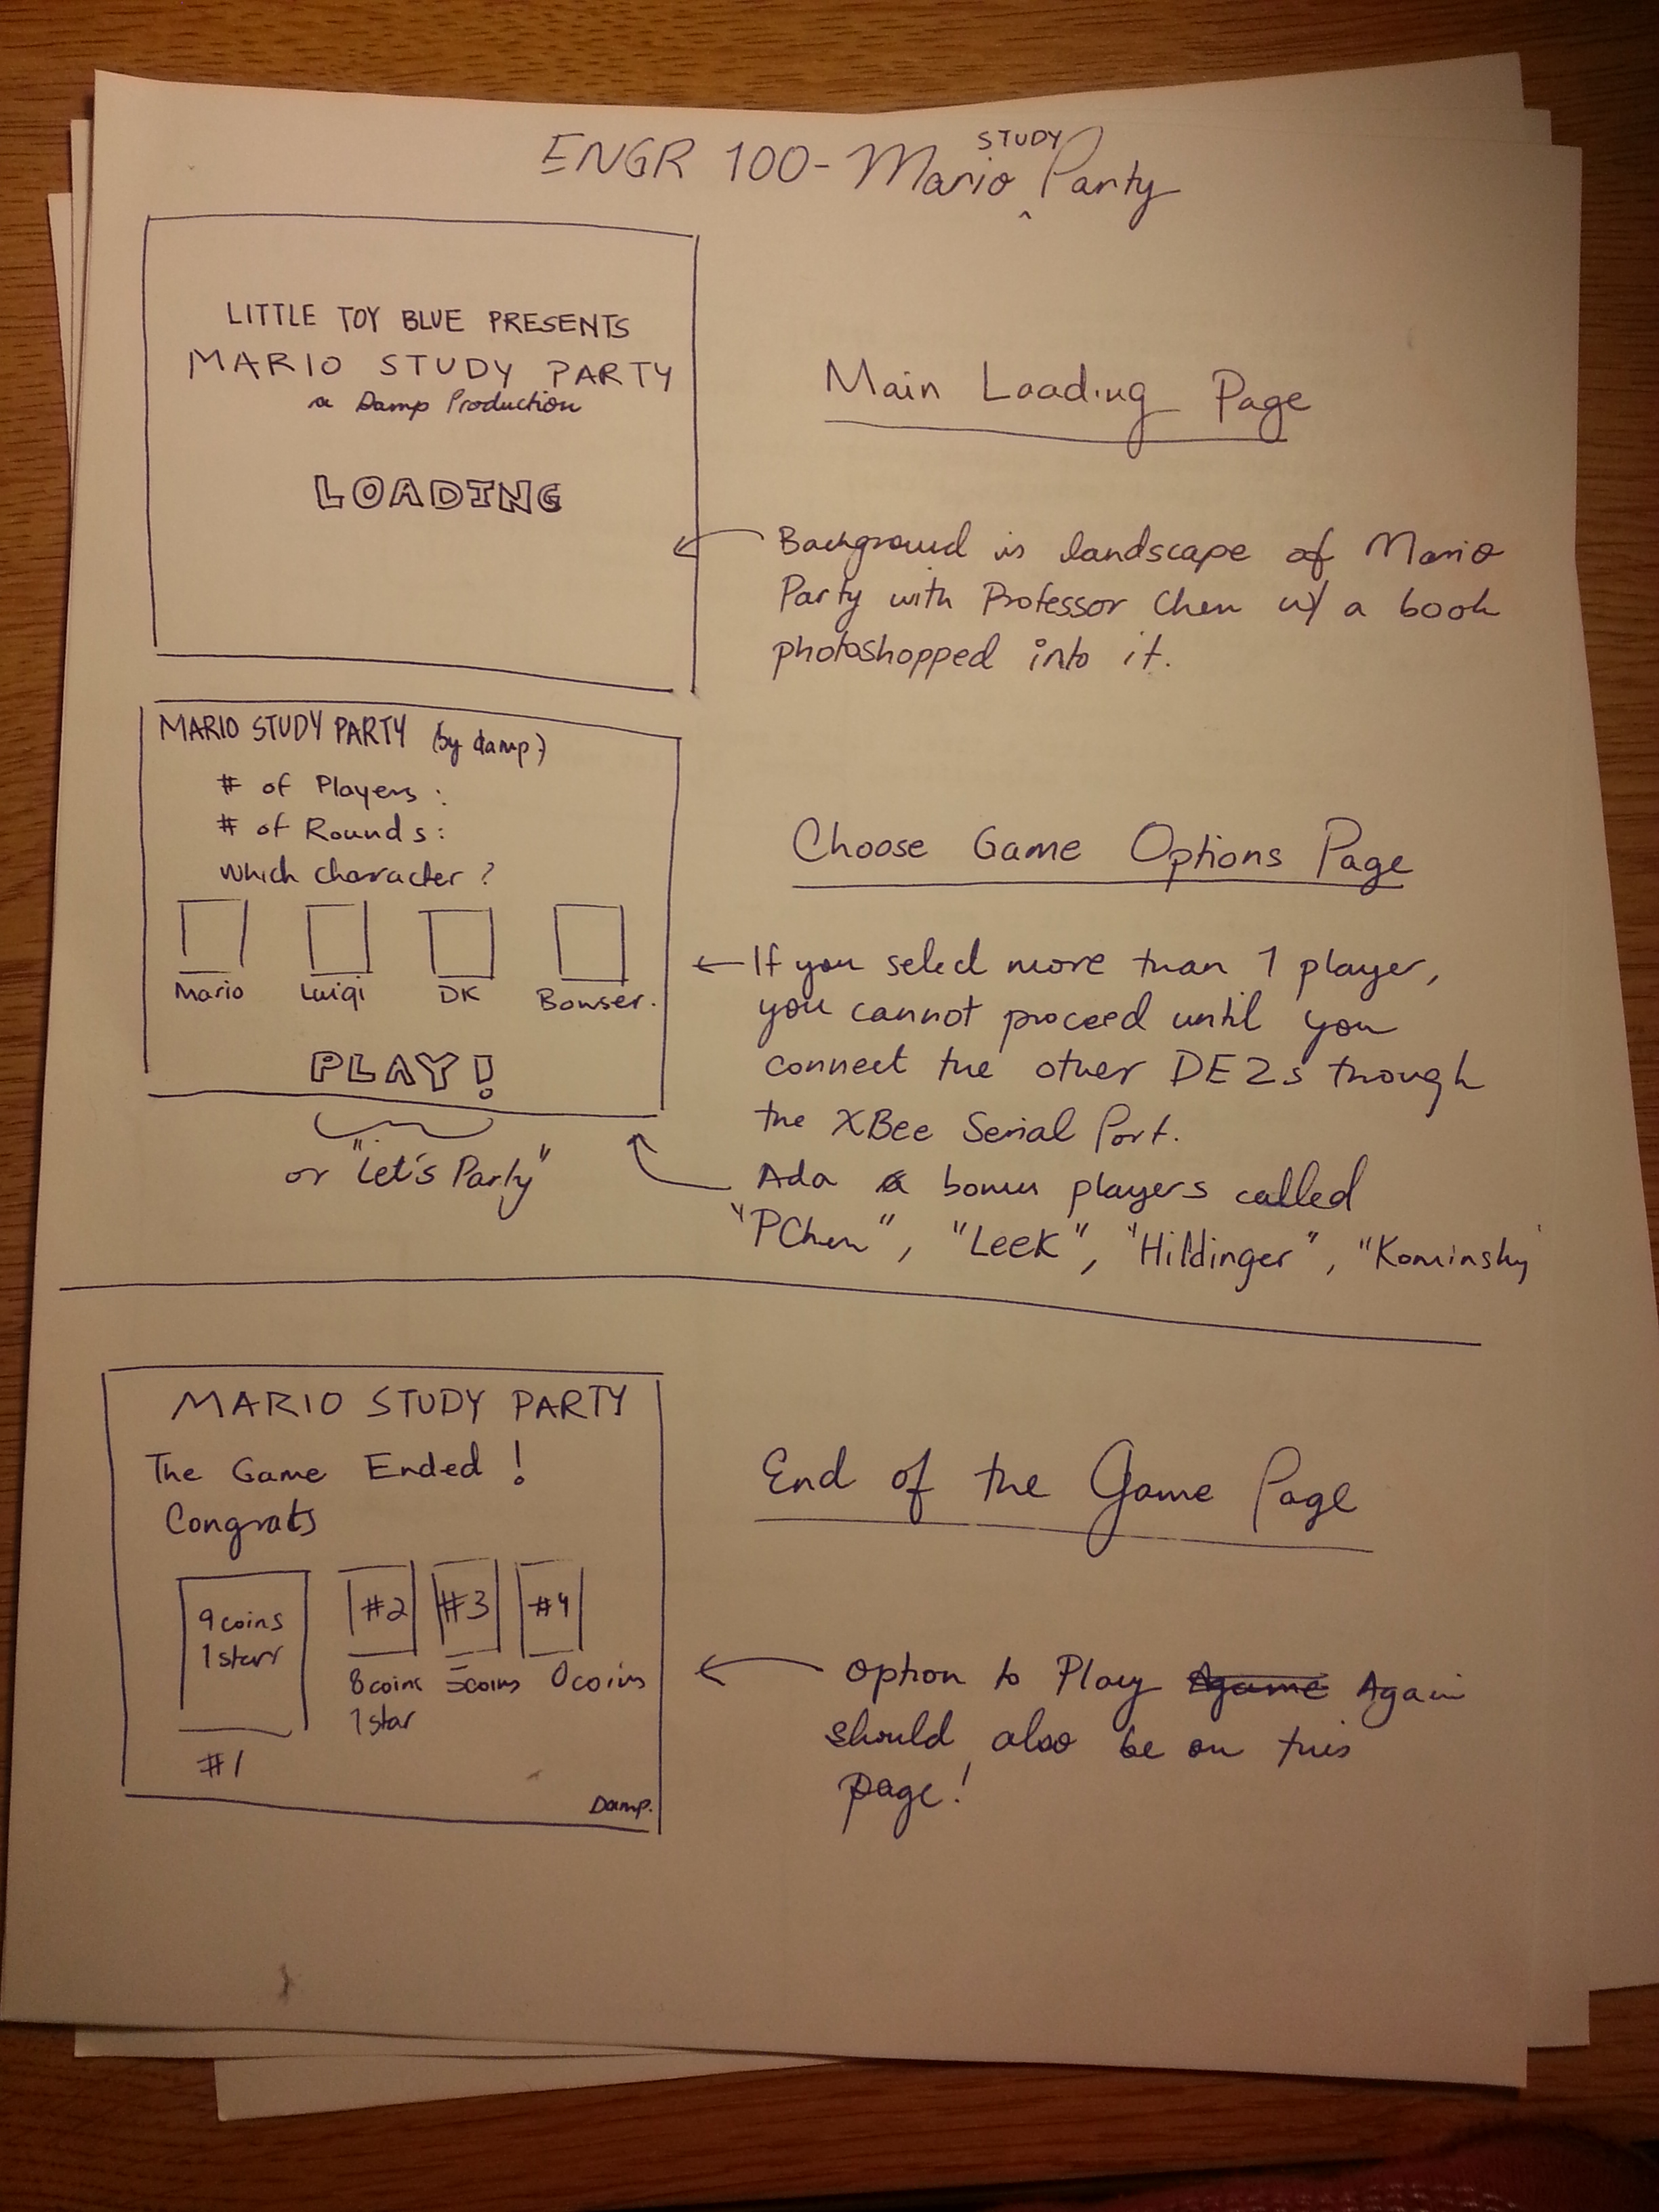 ENGR 100 - Mario STUDY Party
LITTLE TOY BLUE PRESENTS
MARIO STUDY PARTY
a Damp Production
LOADING
Main Loading Page
Background is landscape of Mario
Party with Professor Chen w/ a book
photoshopped into it.
MARIO STUDY PARTY (by damp)
# of Players :
# of Rounds :
which character ?
Mario Luigi DK Bowser.
PLAY!
or "Let's Party"
Choose Game Options Page
If you select more than 1 player,
you cannot proceed until you
connect the other DE2s though
the XBee Serial Port.
Add a bonus players called
"PChen", "LeeK", "Hildinger", "Kominsky
MARIO STUDY PARTY
The Game Ended !
Congrats
9 coins
1 starr
#1
#2 #3 #4
8 coins 5 coins 0 coins
1 star
Damp.
End of the Game Page
option to Play Agame Again
should also be on this
page!